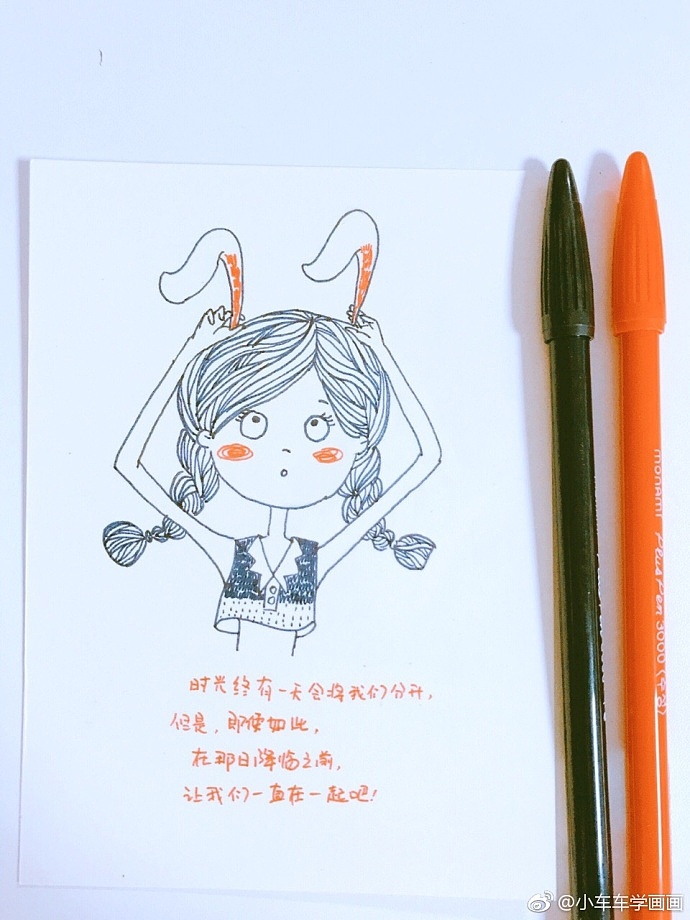 时光终有一天会将我们分开，
但是，即使如此，
在那日降临之前，
让我们一直在一起吧！
monami Plus Pen 3000
@小车车学画画